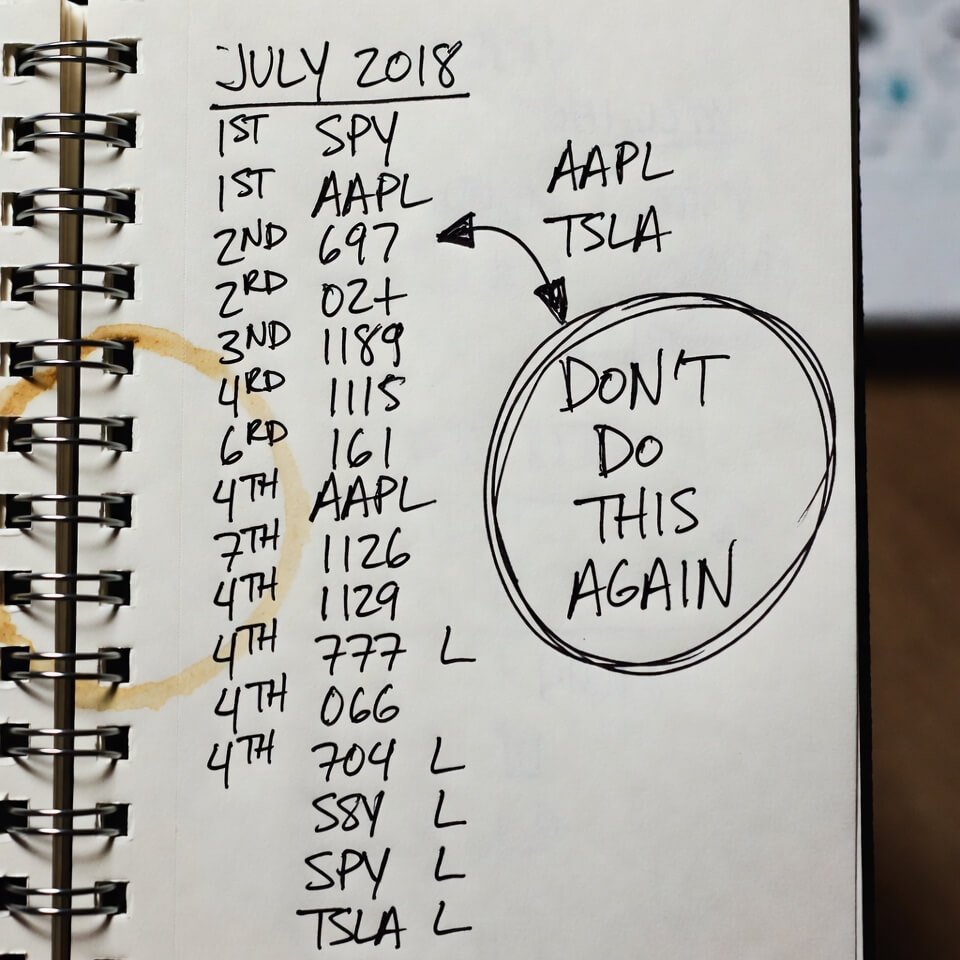 JULY 2018
1ST SPY
1ST AAPL
2ND 697
2RD 02+
3ND 1189
4RD 1115
6RD 161
4TH AAPL
7TH 1126
4TH 1129
4TH 777 L
4TH 066
4TH 704 L
S8Y L
SPY L
TSLA L
AAPL
TSLA
DON'T
DO
THIS
AGAIN